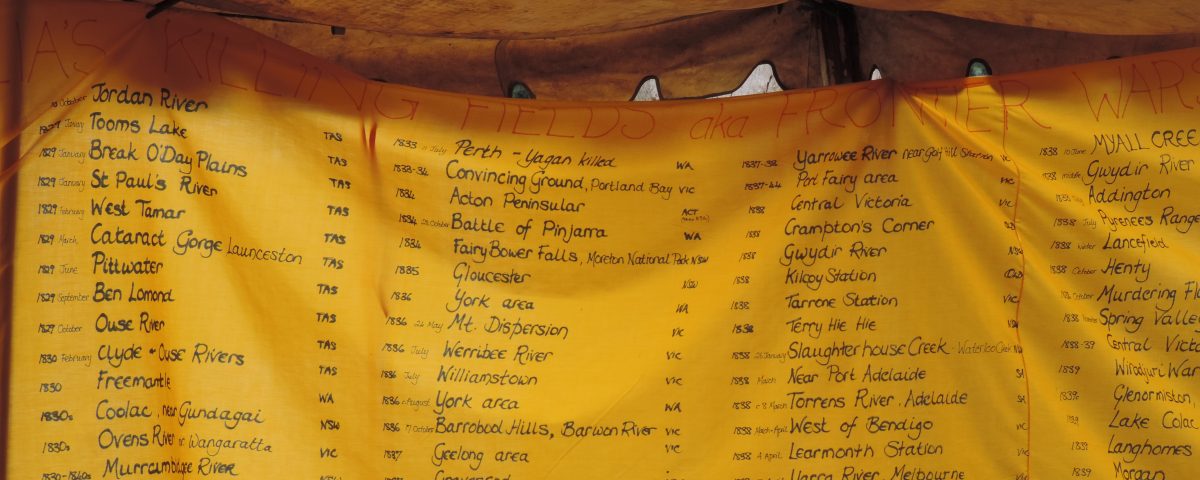 A'S KILLING FIELDS aka FRONTIER WARS
October Jordan River TAS
1827 January Tooms Lake TAS
1829 January Break O'Day Plains TAS
1829 January St Paul's River TAS
1829 February West Tamar TAS
1829 March Cataract Gorge Launceston TAS
1829 June Pittwater TAS
1829 September Ben Lomond TAS
1829 October Ouse River TAS
1830 February Clyde & Ouse Rivers TAS
1830 Freemantle WA
1830s Coolac, near Gundagai NSW
1830s Ovens River or Wangaratta VIC
1830-1840s Murrumbidgee River NSW
1833 11 July Perth - Yagan killed WA
1833-34 Convincing Ground, Portland Bay VIC
1834 Acton Peninsular ACT
1834 28 October Battle of Pinjarra WA
1834 Fairy Bower Falls, Moreton National Park NSW
1835 Gloucester NSW
1836 York area WA
1836 24 May Mt. Dispersion VIC
1836 July Werribee River VIC
1836 July Williamstown VIC
1836 August York area WA
1836 17 October Barrabool Hills, Barwon River VIC
1837 Geelong area VIC
1837-38 Yarrowee River near Golf Hill Station VIC
1837-44 Port Fairy area VIC
1838 Central Victoria VIC
1838 Crampton's Corner
1838 Gwydir River NSW
1838 Kilcoy Station QLD
1838 Tarrone Station VIC
1838 Terry Hie Hie NSW
1838 26 January Slaughterhouse Creek - Waterloo Creek NSW
1838 March Near Port Adelaide SA
1838 March Torrens River, Adelaide SA
1838 March-April West of Bendigo VIC
1838 4 April Learmonth Station VIC
Yarra River, Melbourne
1838 10 June MYALL CREE
1838 Gwydir River
1838 July Addington
1838 July Pyrenees Range
1838 winter Lancefield
1838 October Henty
October Murdering Fl
1838 Spring Valle
1838-39 Central Victo
1839 Wiradjuri War
1839 Glenormiston,
1839 Lake Colac
1839 Langhornes
1839 Morgan